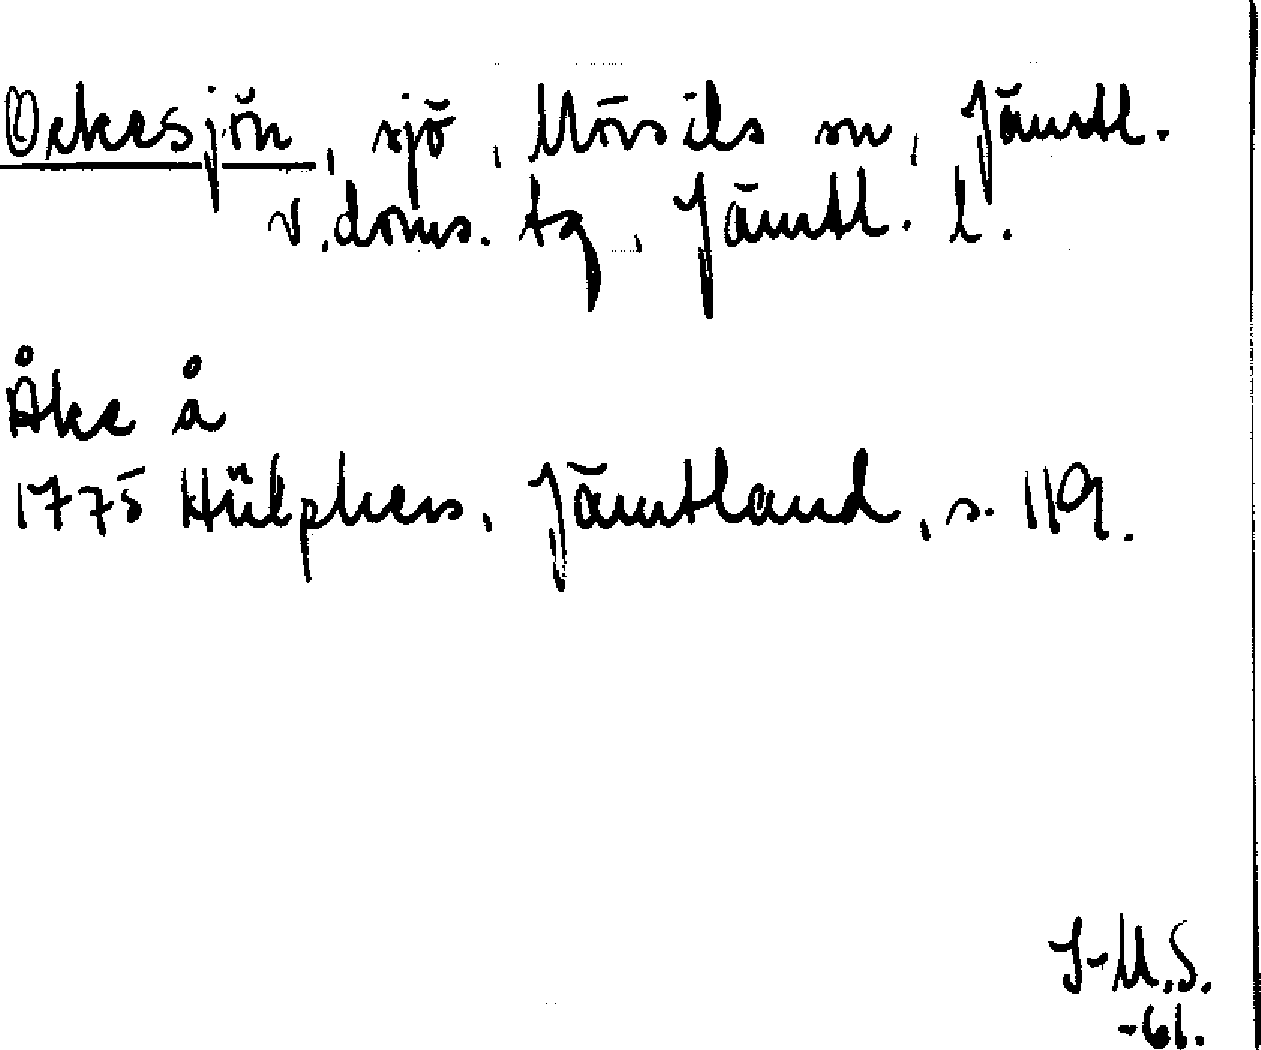 Ockesjön, sjö, Mörsils sn, Jämtl.
v. doms. tg, Jämtl. l.
Åke å
1775 Hülphers, Jämtland, s. 119.
I-M.S.
-61.